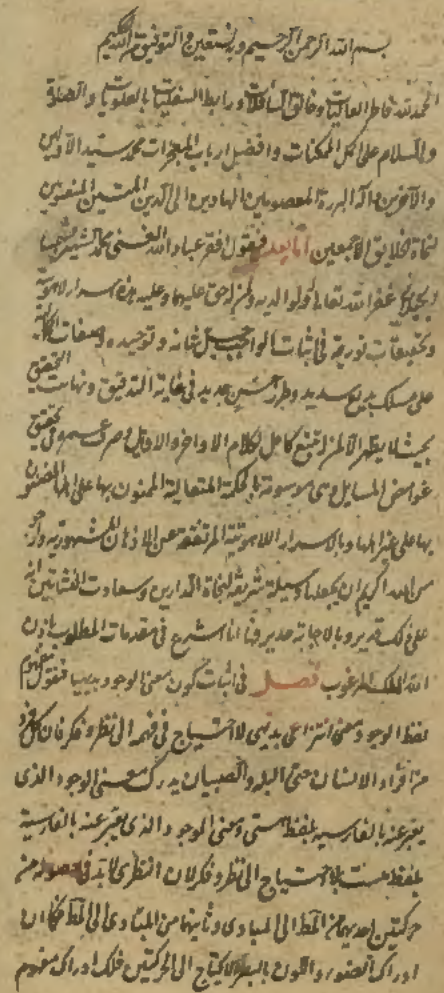 بسم الله الرحمن الرحيم وبه نستعين والتوفيق من الله الكريم
الحمد لله فاطر العاليات وخالق السافلات ورابط السفليات بالعلويات والصلوة
والسلام على اكمل الممكنات وافضل ارباب المعجزات محمد سيد الاولين
والآخرين وآله البررة المعصومين الهادين الى الدين المتين
لنجاة الخلايق اجمعين اما بعد فيقول افقر عباد الله الغني محمد
غفر الله تعالى له ولوالديه ولمن له حق عليهما وعليه هذه اسرار لاهوتية
وتحقيقات نورية في اثبات الواجب جل شانه وتوحيده وصفات
على مسلك بديع سديد وطرز حسن جديد في غاية التدقيق ونهاية التحقيق
بحيث لا يظهر الا لمن تتبع كامل لكلام الاواخر والاوايل وصرف عمره في تحقيق
غوامض المسايل وهي موسومة بالحكمة المتعالية الممنون بها على اهلها المضنون
بها على غير اهلها وبالاسرار اللاهوتية المرتفعة عن الاذهان المشهورية وارجو
من الله الكريم ان يجعلها وسيلة شريفة لنجاة الدارين وسعادت النشاتين انه
على ذلك قدير وبالاجابة جدير وها انا اشرع في مقدمات المطلوب بعون
الله الملك المرغوب فصل في اثبات كون معنى الوجود بديهيا فنقول مفهوم
لفظ الوجود معنى انتزاعي بديهي لا احتياج في فهمه الى نظر وفكر فان كل فرد
من افراد الانسان حتى البله والصبيان يدرك معنى الوجود الذي
يعبر عنه بالفارسية بلفظ هستي ومعنى الموجود الذي يعبر عنه بالفارسية
بلفظ هست بلا احتياج الى نظر وفكر لان النظري لابد في حصوله من
حركتين احديهما من المط الى المبادى وثانيهما من المبادى الى المط فكما ان
ادراك الضوء واللون بالبصر لا يحتاج الى الحركتين فكذلك ادراك مفهوم